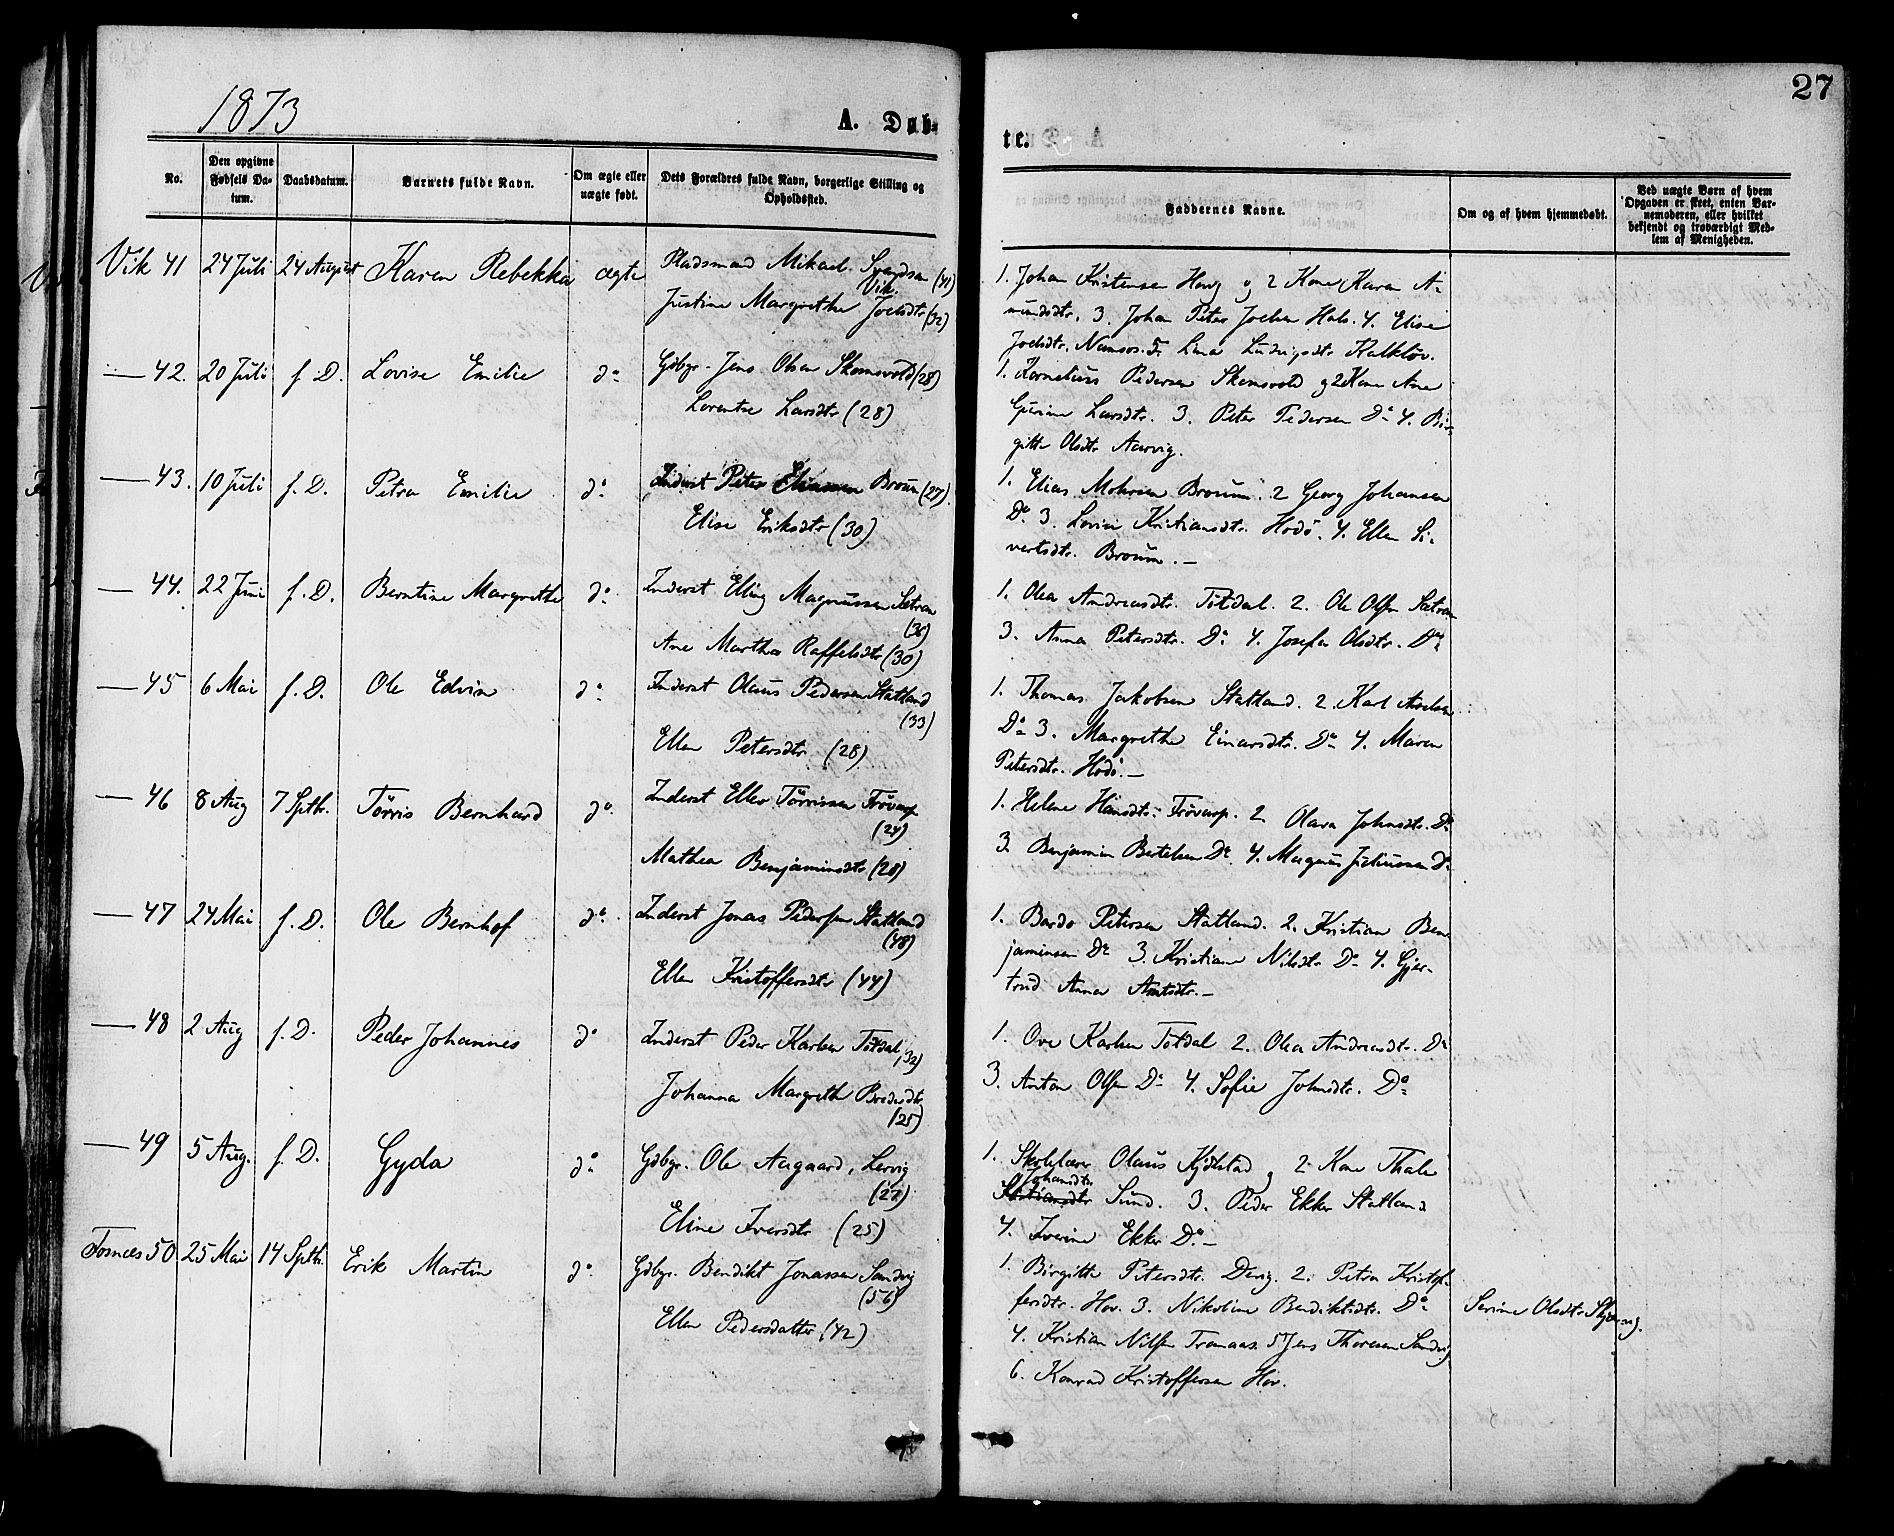 27
1873
A. Døb-
te.
No.
Den opgivne Fødsels Da-tum.
Daabsdatum.
Barnets fulde Navn.
Om ægte eller uægte født.
Dets Forældres fulde Navn, borgerlige Stilling og Opholdssted.
Faddernes Navne.
Om og af hvem hjemmedøbt.
Ved uægte Børn af hvem Opgaven er skeet, enten Bar-nemoderen, eller hvilket bekjendt og troværdigt Med-lem af Menigheden.
Vik 41 24 Juli 24 August Karen Rebekka ægte Pladsmand Mikael Svendsen (41)
Vik.
Justine Margrethe Joelsdtr (32)
1. Johan Kristensen Houg og 2 Kone Karen A-
mundsdtr. 3. Johan Peter Joelsen Hals. 4. Elise
Joelsdtr. Namsos. 5. Lina Ludvigsdtr Kalkløv.
— 42. 20 Juli f. D. Lovise Emilie do Gdbgr. Jens Olsen Skomsvold (28)
Lorentse Larsdtr (28)
1. Kornelius Pedersen Skomsvold og 2 Kone Ane
Gurine Larsdtr. 3. Peter Pedersen Do 4. Bir-
gitte Olsdtr Aarvig.
— 43. 10 Juli f. D. Petra Emilie do Inderst Peter Eliassen Broum (27).
Elise Eriksdtr (30)
1. Elias Mohrsen Broum. 2 Georg Johansen
Do 3. Lovise Kristiansdtr. Hodö. 4. Ellen Si-
vertsdtr. Broum. —
— 44. 22 Juni f. D. Berntine Margrethe do Inderst Elling Magnussen Sætran
(36)
Ane Martha Raffelsdtr (30)
1. Olea Andreasdtr. Tötdal. 2. Ole Olsen Sætran
3. Anna Petersdtr. Do 4. Josefa Olsdtr. Do
— 45 6 Mai f. D. Ole Edvin do Inderst Olaus Pedersen Statland
(33)
Ellen Petersdtr (28)
1. Thomas Jakobsen Statland. 2. Karl Axelsen
Do 3. Margrethe Einarsdtr. Do 4. Maren
Petersdtr. Hodö. —
— 46 8 Aug 7 Septbr. Törris Bernhard do Inderst Ellev Törrissen Frövarp
(24)
Mathea Benjaminsdtr (28)
1. Helene Hansdtr. Frövarp. 2 Olava Johnsdtr. Do
3. Benjamin Bertelsen Do 4. Magnus Juliussen Do
— 47 24 Mai f. D. Ole Bernhof do Inderst Jonas Pedersen Statland
(48)
Ellen Kristoffersdtr (44)
1. Bardo Petersen Statland. 2. Kristian Ben-
jaminsen Do 3. Kristiane Nilsdtr Do 4. Gjer-
trud Anna Arntsdtr. —
— 48 2 Aug f. D. Peder Johannes do Inderst Peder Karlsen Tötdal (32)
Johanna Margreth Brodersdtr
(25)
1. Ove Karlsen Tötdal 2. Olea Andreasdtr. Do
3. Anton Olsen Do 4. Sofie Johnsdtr. Do
— 49 5 Aug. f. D. Gyda do Gdbgr. Ole Aagaard, Lervig
(27)
Eline Iversdtr (25)
1. Skolelærer Olaus Kjölstad og 2. Kone Thale
Johansdtr.
Sund. 3. Peder Ekker Statland
4. Iverine Ekker Do —
Fosnæs 50 25 Mai 14 Septbr. Erik Martin do Gdbgr. Bendikt Jonassen Sandvig
(56)
Ellen Pedersdatter (42)
1. Birgitte Petersdtr. Devig. 2. Petra Kristof-
fersdtr. Hov. 3. Nikoline Bendiktsdtr. Do
Serine Olsdtr.
4. Kristian Nilsen Tranaas. 5 Jens Thoresen Sandvig
6. Konrad Kristoffersen Hov.